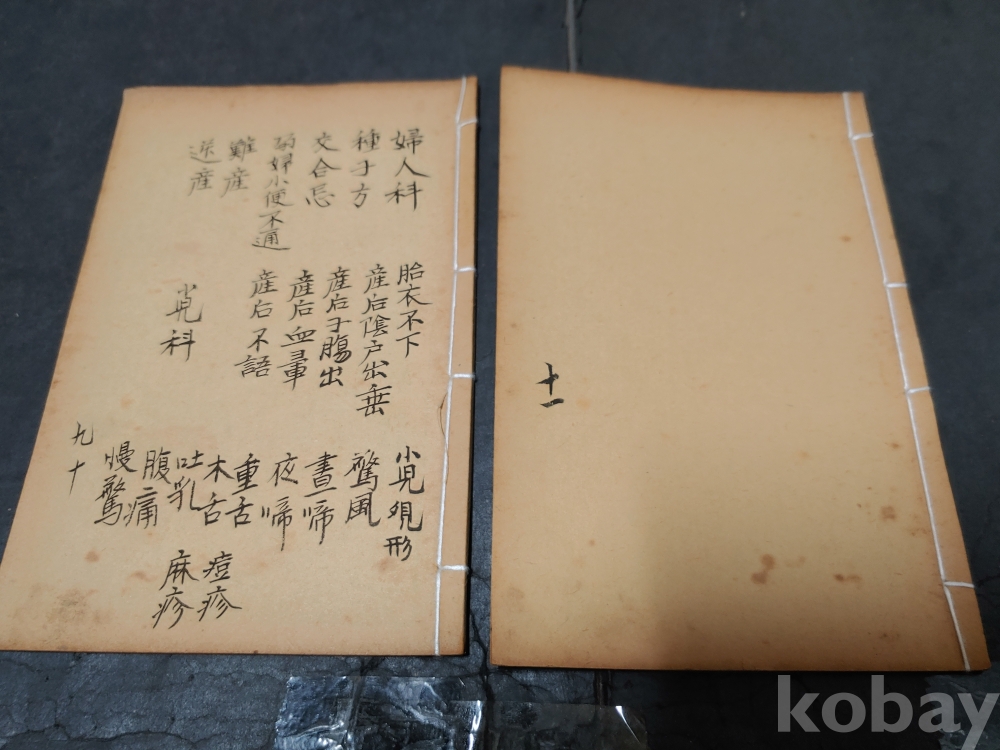 婦人科
種子方
交合忌
孕婦小便不通
難産
逆産
胎衣不下
産后陰户出垂
産后子腸出
産后血暈
産后不語
小兒科
小兒現形
驚風
晝啼
夜啼
重舌
木舌
吐乳
腹痛
慢驚
痘疹
麻疹
九十
十一
kobay